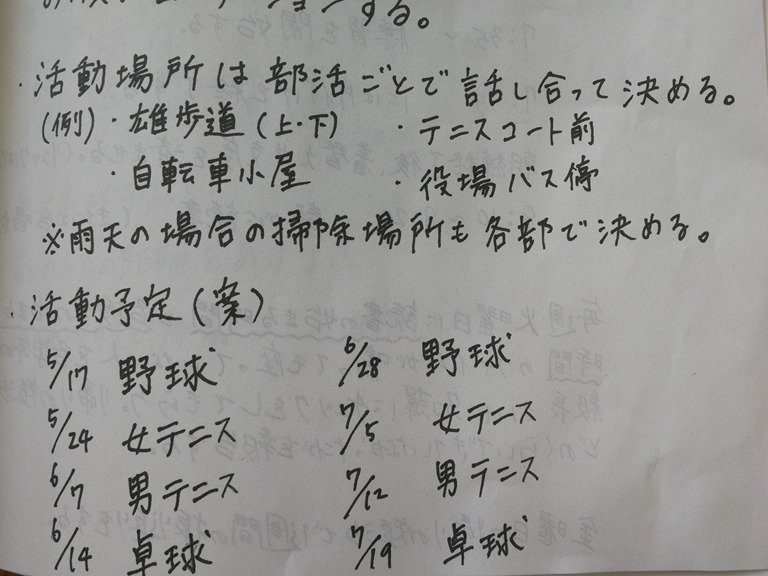 する。
・活動場所は部活ごとで話し合って決める。
(例)・雄歩道(上・下) ・テニスコート前
・自転車小屋 ・役場バス停
※雨天の場合の掃除場所も各部で決める。
・活動予定(案)
5/17 野球 6/28 野球
5/24 女テニス 7/5 女テニス
6/7 男テニス 7/12 男テニス
6/14 卓球 7/19 卓球